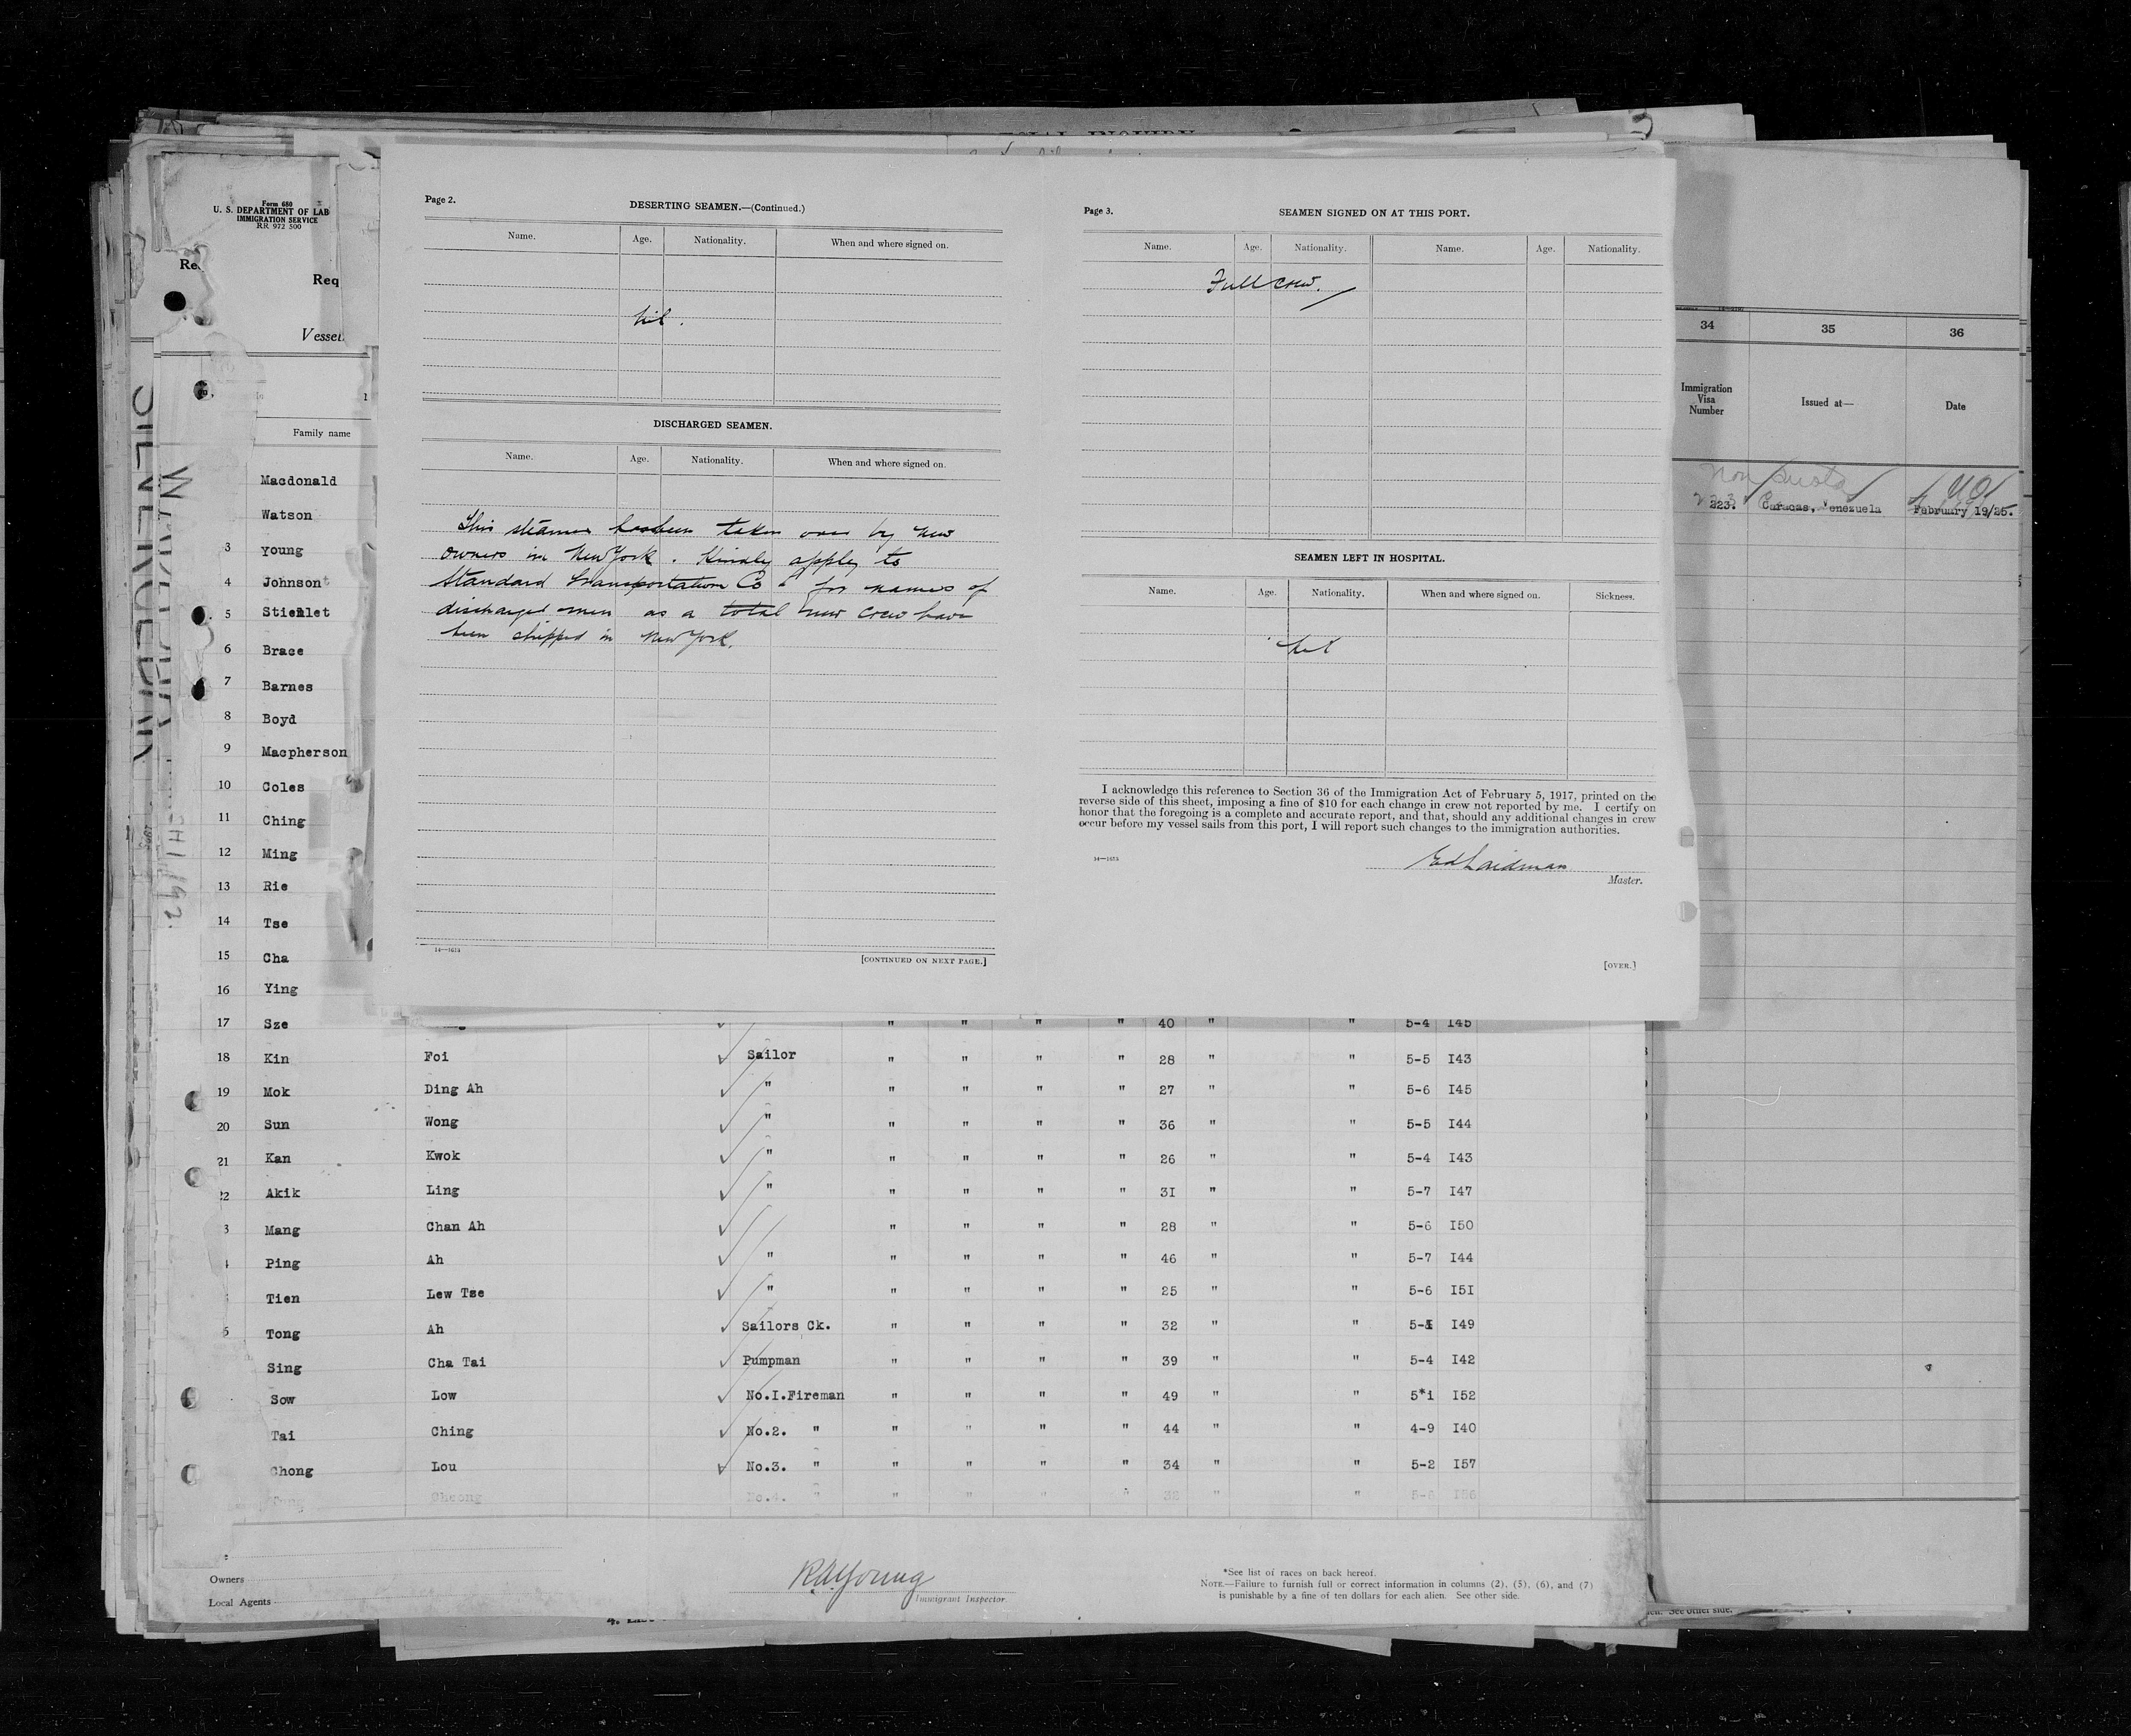 Form 680
U. S. DEPARTMENT OF LAB
IMMIGRATION SERVICE
RR 972 500
Req
Vessel
Family name
Macdonald
Watson
3 young
4 Johnson
5 Stienlet
6 Brace
7 Barnes
8 Boyd
9 Macpherson
10 Coles
11 Ching
12 Ming
13 Rie
14 Tse
15 Cha
16 Ying
Page 2.
DESERTING SEAMEN.—(Continued.)
Name. Age. Nationality. When and where signed on.
Nil.
DISCHARGED SEAMEN.
Name. Age. Nationality. When and where signed on.
This steamer has been taken over by new
owners in New York. Kindly apply to
Standard Transportation Co for names of
discharged men as a total new crew have
been shipped in New York.
14—1654
[CONTINUED ON NEXT PAGE.]
Page 3.
SEAMEN SIGNED ON AT THIS PORT.
Name. Age. Nationality. Name. Age. Nationality.
Full crew.
SEAMEN LEFT IN HOSPITAL.
Name. Age. Nationality. When and where signed on. Sickness.
Nil
I acknowledge this reference to Section 36 of the Immigration Act of February 5, 1917, printed on the
reverse side of this sheet, imposing a fine of $10 for each change in crew not reported by me. I certify on
honor that the foregoing is a complete and accurate report, and that, should any additional changes in crew
occur before my vessel sails from this port, I will report such changes to the immigration authorities.
Ed Laidman
Master.
[OVER.]
34 35 36
Immigration
Visa
Number
Issued at—
Date
Non quota
223. Caracas, Venezuela February 19/25.
17 Sze " " " " 40 " " 5-4 I45
18 Kin Foi Sailor " " " " 28 " " 5-5 I43
19 Mok Ding Ah " " " " " 27 " " 5-6 I45
20 Sun Wong " " " " " 36 " " 5-5 I44
21 Kan Kwok " " " " " 26 " " 5-4 I43
22 Akik Ling " " " " " 31 " " 5-7 I47
3 Mang Chan Ah " " " " 28 " " 5-6 I50
Ping Ah " " " " " 46 " " 5-7 I44
Tien Lew Tse " " " " " 25 " " 5-6 I5I
Tong Ah Sailors Ck. " " " " 32 " " I49
Sing Cha Tai Pumpman " " " " 39 " " 5-4 I42
Sow Low No.I.Fireman " " " " 49 " " 5*1 I52
Tai Ching No.2. " " " " " 44 " " 4-9 I40
Chong Lou No.3. " " " " " 34 " " 5-2 I57
Cheong No.4. " " " " " 32 " "
Owners
Local Agents
R.A. Young
Immigrant Inspector.
*See list of races on back hereof.
NOTE.—Failure to furnish full or correct information in columns (2), (5), (6), and (7)
is punishable by a fine of ten dollars for each alien. See other side.
See other side.